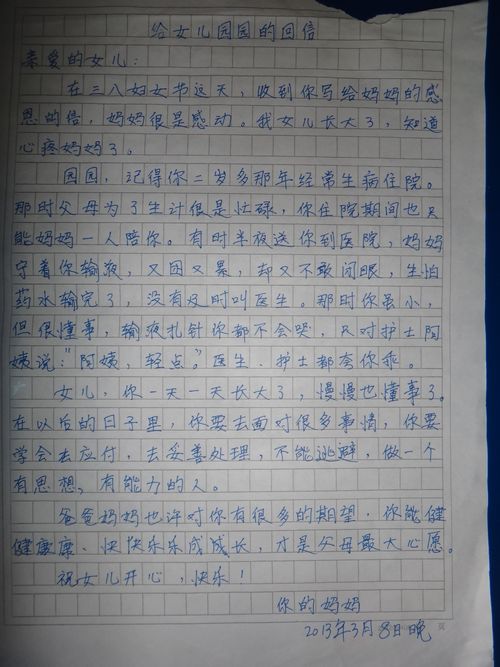 给女儿园园的回信
亲爱的女儿：
在三八妇女节这天，收到你写给妈妈的感
恩的信，妈妈很是感动。我女儿长大了，知道
心疼妈妈了。
园园，记得你二岁多那年经常生病住院。
那时父母为了生计很是忙碌，你住院期间也只
能妈妈一人陪你。有时半夜送你到医院，妈妈
守着你输液，又困又累，却又不敢闭眼，生怕
药水输完了，没有及时叫医生。那时你虽小，
但很懂事，输液扎针你都不会哭，只对护士阿
姨说："阿姨，轻点。"医生、护士都夸你乖。
女儿，你一天一天长大了，慢慢也懂事了。
在以后的日子里，你要去面对很多事情，你要
学会去应付，去妥善处理，不能逃避，做一个
有思想，有能力的人。
爸爸妈妈也许对你有很多的期望，你能健
健康康、快快乐乐成成长，才是父母最大心愿。
祝女儿开心，快乐！
你的妈妈
2013年3月8日晚
页